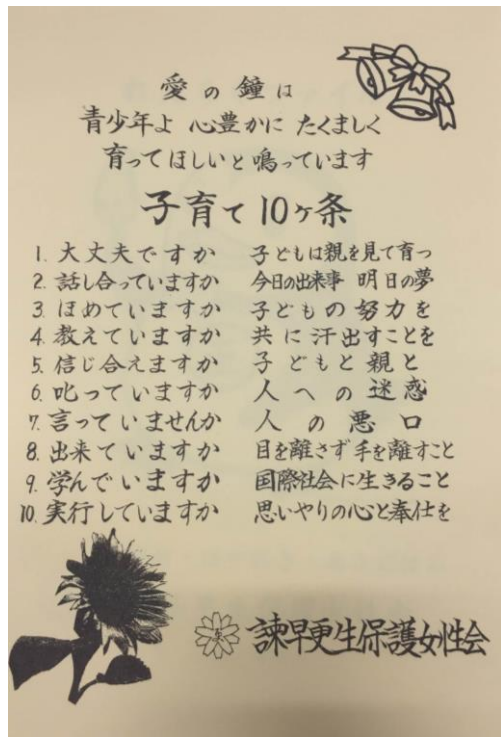 愛の鐘は
青少年よ 心豊かに たくましく
育ってほしいと鳴っています
子育て10ヶ条
1. 大丈夫ですか 子どもは親を見て育つ
2. 話し合っていますか 今日の出来事 明日の夢
3. ほめていますか 子どもの努力を
4. 教えていますか 共に汗出すことを
5. 信じ合えますか 子どもと親と
6. 叱っていますか 人への迷惑
7. 言っていませんか 人の悪口
8. 出来ていますか 目を離さず手を離すこと
9. 学んでいますか 国際社会に生きること
10. 実行していますか 思いやりの心と奉仕を
諫早更生保護女性会